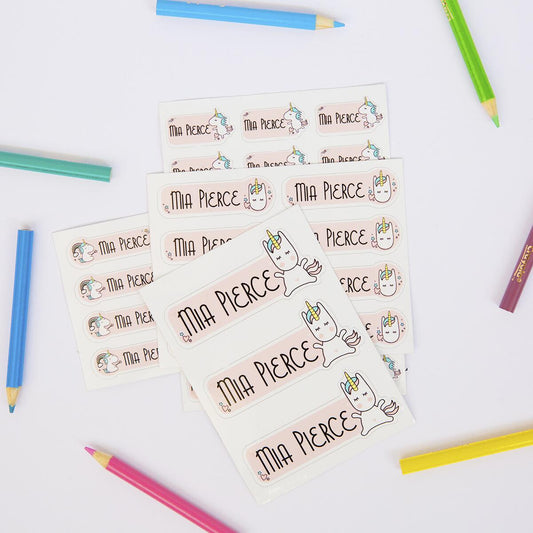 Mia Pierce Mia Pierce Mia Pierce
Mia Pierce Mia Pierce
Mia Pierce
Mia Pierce
Mia Pierce
Mia Pierce
Mia Pierce
Mia Pierce
Mia Pierce
Mia Pierce
Mia Pierce